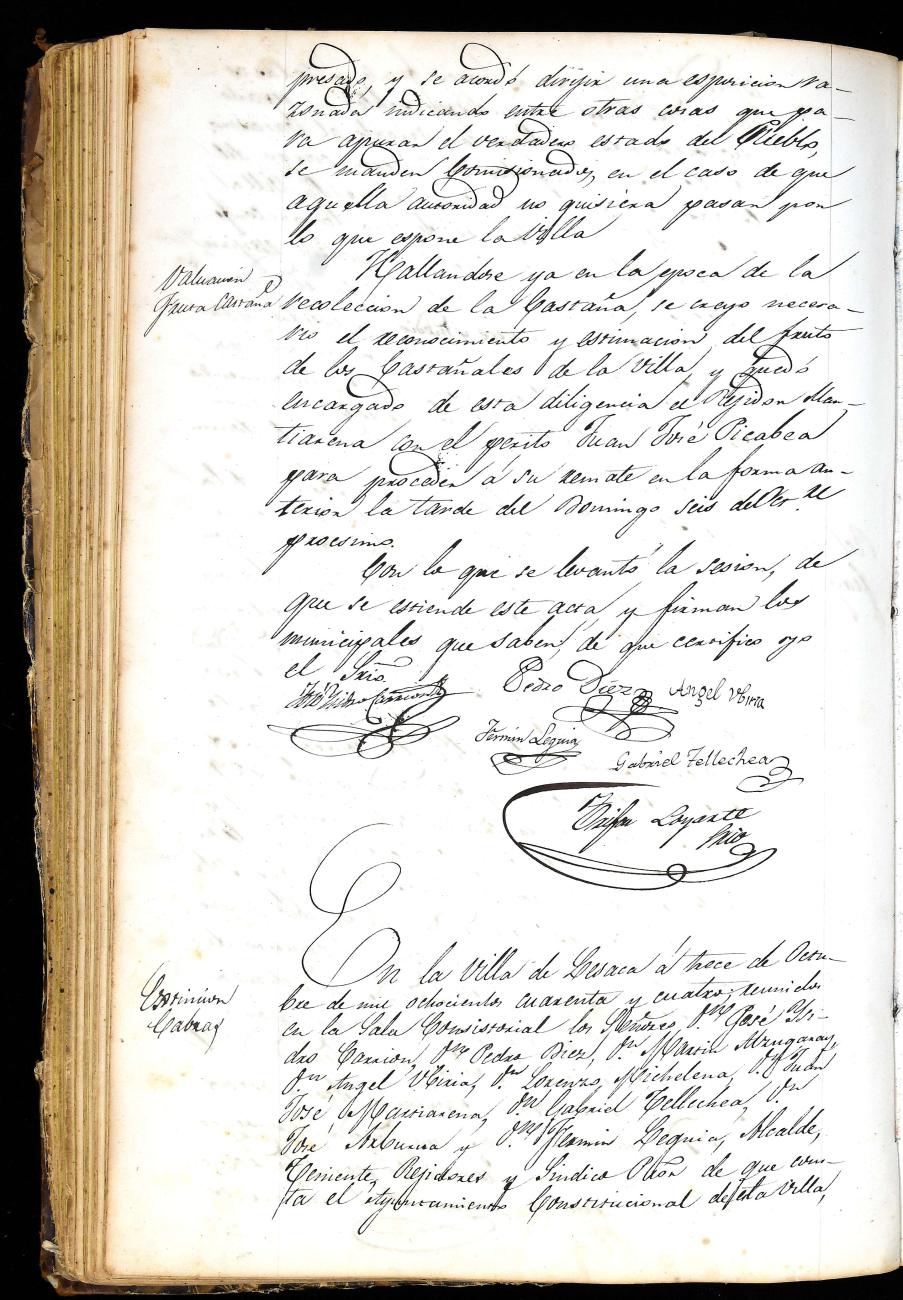 presado, y se acordó dirijir una esposicion ra-
zonada indicando entre otras cosas que pa-
ra apurar el verdadero estado del Pueblo,
se manden Comisionados, en el caso de que
aquella autoridad no quisiera pasar por
lo que espone la Villa
Valuacion
fruta Castaña
Hallandose ya en la epoca de la
recoleccion de la Castaña, se creyo necesa-
rio el reconocimiento y estimacion del fruto
de los Castañales de la Villa, y quedó
encargado de esta diligencia el Rejidor Mar-
tiarena con el perito Juan José Picabea
para proceder á su remate en la forma an-
terior la tarde del Domingo seis del Oct.re
procsimo.
Con lo que se levantó la sesion, de
que se estiende este acta, y firman los
municipales que saben, de que certifico yo
el Srio.
José Ysidro Carrion
Pedro Diez
Angel Vbiria
Fermin Leguia
Gabriel Tellechea
Trifon Loyarte
Srio
Estincion
Cabras
En la Villa de Lesaca á trece de Octu-
bre de mil ochocientos cuarenta y cuatro; reunidos
en la Sala Consistorial los Señores, D.n José Ysi-
dro Carrion, D.n Pedro Diez, D.n Martin Arzugaray,
D.n Angel Vbiria, D.n Lorenzo Michelena, D.n Juan
José Martiarena, D.n Gabriel Tellechea, D.n
José Arburua y D.n Fermin Leguia, Alcalde,
Teniente, Rejidores y Sindico Pror de que cons-
ta el Ayuntamiento Constitucional de esta Villa,